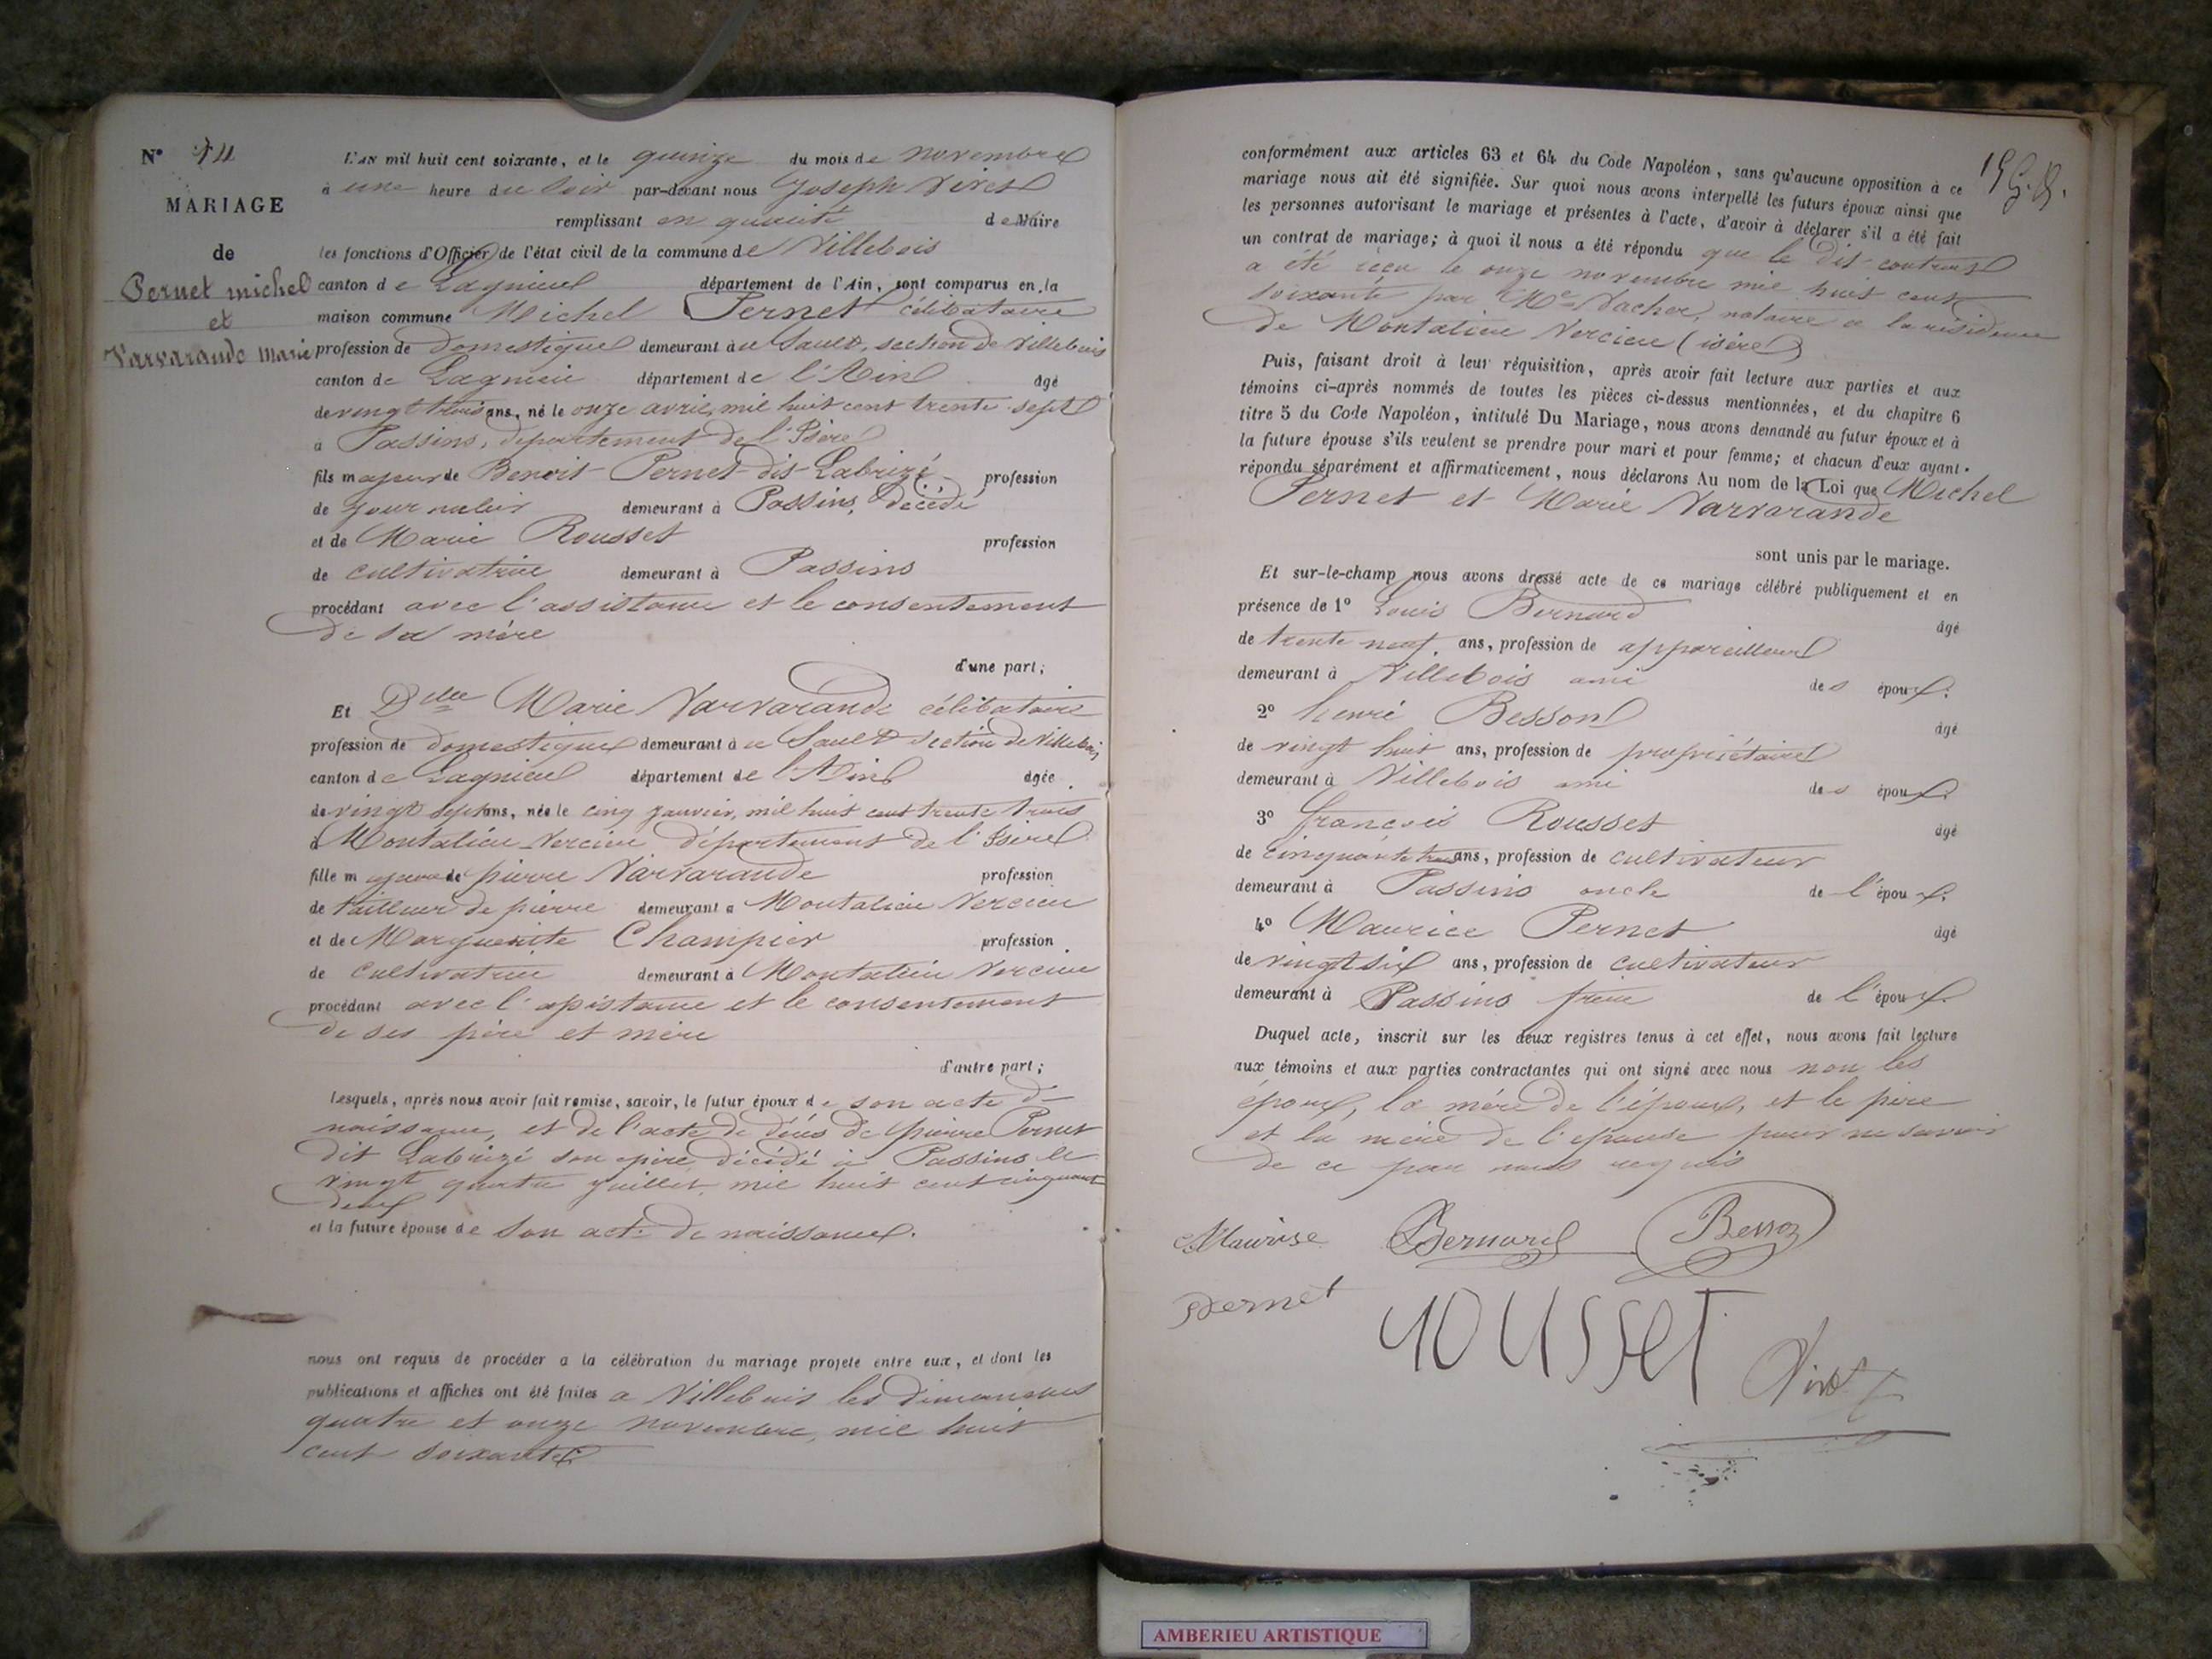 N° 14
MARIAGE
de
Pernet michel
et
Varvarande Marie
L'AN mil huit cent soixante, et le quinze du mois de novembre
à une heure du soir par-devant nous Joseph Viret
remplissant en qualité de Maire
les fonctions d'Officier de l'état civil de la commune de Villebois
canton de Lagnieu département de l'Ain, sont comparus en la
maison commune Michel Pernet célibataire
profession de domestique demeurant à u Sault, section de Villebois
canton de Lagnieu département de l'Ain âgé
de vingt trois ans, né le onze avril, mil huit cent trente sept
à Passins, département de l'Isère
fils majeur de Benoit Pernet dit Labrizé profession
de journalier demeurant à Passins, décédé
et de Marie Rousset profession
de cultivatrice demeurant à Passins
procédant avec l'assistance et le consentement
de sa mère
d'une part;
Et Dlle Marie Varvarande célibataire
profession de domestique demeurant à u Sault section de Villebois
canton de Lagnieu département de l'Ain âgée
de vingt sept ans, née le cinq janvier, mil huit cent trente trois
à Montalieu Vercieu département de l'Isère
fille majeure de pierre Varvarande profession
de tailleur de pierre demeurant à Montalieu Vercieu
et de Marguerite Champier profession
de cultivatrice demeurant à Montalieu Vercieu
procédant avec l'assistance et le consentement
de ses père et mère
d'autre part;
Lesquels, après nous avoir fait remise, savoir, le futur époux de son acte de
naissance, et de l'acte de décès de pierre Pernet
dit Labrizé son père décédé à Passins le
vingt quatre juillet, mil huit cent cinquante
deux
et la future épouse de son acte de naissance.
nous ont requis de procéder à la célébration du mariage projeté entre eux, et dont les
publications et affiches ont été faites a Villebois les dimanches
quatre et onze novembre, mil huit
cent soixante
conformément aux articles 63 et 64 du Code Napoléon, sans qu'aucune opposition à ce
mariage nous ait été signifiée. Sur quoi nous avons interpellé les futurs époux ainsi que
les personnes autorisant le mariage et présentes à l'acte, d'avoir à déclarer s'il a été fait
un contrat de mariage; à quoi il nous a été répondu que le dit contrat
a été reçu le onze novembre mil huit cent
soixante par Me Vacher, notaire a la résidence
de Montalieu Vercieu (isère)
Puis, faisant droit à leur réquisition, après avoir fait lecture aux parties et aux
témoins ci-après nommés de toutes les pièces ci-dessus mentionnées, et du chapitre 6
titre 5 du Code Napoléon, intitulé Du Mariage, nous avons demandé au futur époux et à
la future épouse s'ils veulent se prendre pour mari et pour femme; et chacun d'eux ayant
répondu séparément et affirmativement, nous déclarons Au nom de la Loi que Michel
Pernet et Marie Varvarande
sont unis par le mariage.
Et sur-le-champ nous avons dressé acte de ce mariage célébré publiquement et en
présence de 1° Louis Bernard âgé
de trente neuf ans, profession de appareilleur
demeurant à Villebois ami des époux.
2° henri Besson âgé
de vingt huit ans, profession de propriétaire
demeurant à Villebois ami des époux
3° françois Rousset âgé
de cinquante trois ans, profession de cultivateur
demeurant à Passins oncle de l'époux.
4° Maurice Pernet âgé
de vingt six ans, profession de cultivateur
demeurant à Passins frère de l'époux.
Duquel acte, inscrit sur les deux registres tenus à cet effet, nous avons fait lecture
aux témoins et aux parties contractantes qui ont signé avec nous non les
époux, la mère de l'époux, et le père
et la mère de l'épouse pour ne savoir
de ce par nous requis
Maurise Bernard Besson
Pernet rousset Viret
AMBERIEU ARTISTIQUE